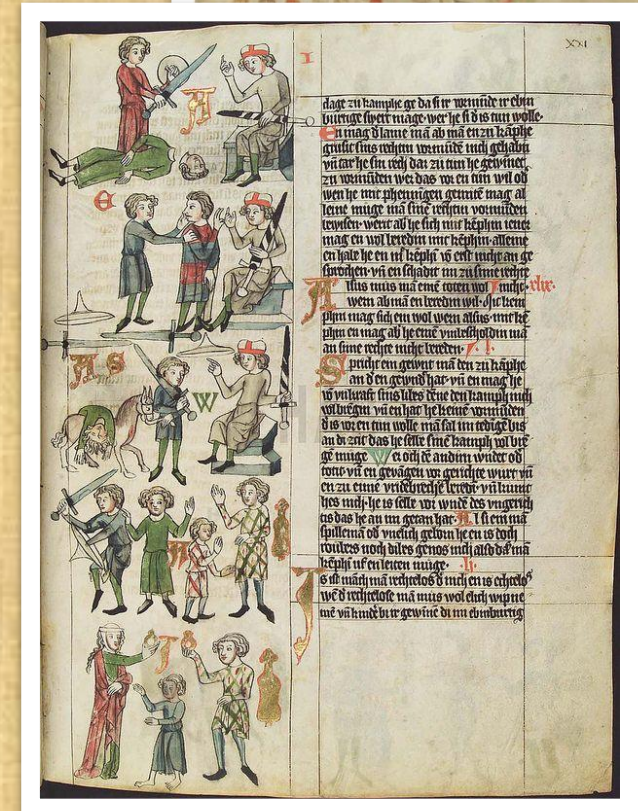 XXI
I
dage zu kamphe ge da si ir vormunde ir ebin
burtige swert mage. wer he si dis tun wolle.
En mag d lame mā ab mā en zu kāphe
sins rechtin vormūde nich gehabin
vn tar he sin rech dar zu tun he gewinet
zu vormūden wer das vor en tun wil od
wen he mit phenningen gemite mag al
leine muge mā sine rechtin vormūden
bewisen. went ab he sich mit kēphin
mag en wol beredin mit kēphin. alleine
en habe he en mit kēphe vō erst nicht an ge
sprochen. vn en schadit im zu sime rechte
Alsus mus mā eine toten wol niche. xlix.
wem ab mā en beredin wil. Mit kem
phin mag sich ein wol wern alsus. mit kē
phin en mag ab he eine mā
an sime rechte niche bereden. l.
Spricht ein gewnt mā den zu kāphe
an d en gewūd hat. vn en mag he
vō sins libes dēne den kamph nich
volbrēgin vn en hat he keinē vormūden
d is vor en tun wolle mā sal im tedige bis
an di zcit das he selbe sine kamph vol brē
gē muge. Wei och dē andirn wndet od
totit vn en gevāgen vor gerichte wurt vn
en zu eime vridebreche beredt. vn kumt
hes nich. he is selbe vor wnde des ungerich
tis das he an im getan hat. Al si ein mā
spillemā od unelich geborn he en is doch
roubers noch dibes genos nich alsō dc mā
kēphin uf en leiten muge. li.
Is ist māch mā rechtelos d nich en is echtelos
wē d rechtelose mā mus wol elich wip ne
me vn kindē bi ir gewine di im ebinburtig
A
E
A S
W
A
I